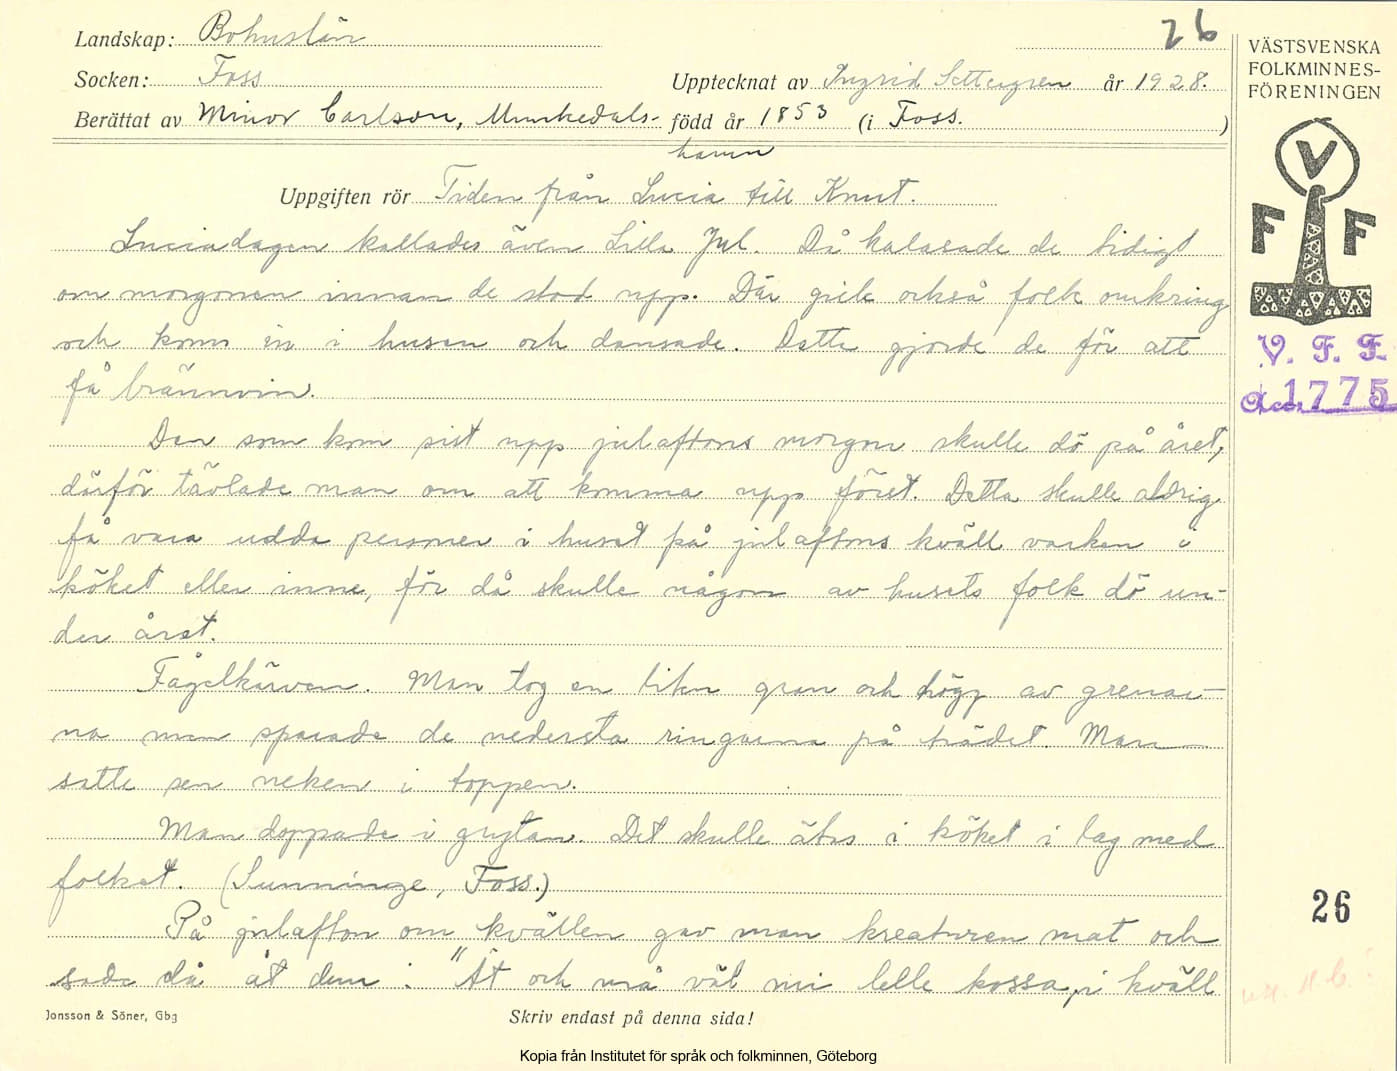 26
Landskap: Bohuslän
Socken: Foss
Upptecknat av Ingrid Settergren år 1928.
Berättat av Minor Carlson, Munkedals-
hamn
född år 1853 (i Foss.)
Uppgiften rör Tiden från Lucia till Knut.
Luciadagen kallades även Lilla Jul. Då kalasade de tidigt
om morgonen innan de stod upp. Där gick också folk omkring
och kom in i husen och dansade. Detta gjorde de för att
få brännvin.
Den som kom sist upp julaftons morgon skulle dö på året,
därför tävlade man om att komma upp först. Detta skulle aldrig
få vara udda personer i huset på julaftons kväll varken i
köket eller inne, för då skulle någon av husets folk dö un-
der året.
Fågelkärven. Man tog en liten gran och högg av grenar-
na men sparade de nedersta ringarna på trädet. Man
satte sen neken i toppen.
Man doppade i grytan. Det skulle ätas i köket i lag med
folket. (Sunninge, Foss.)
På julafton om kvällen gav man kreaturen mat och
sade då åt dem: "Ät och må väl mi lelle kossa, i kväll
VÄSTSVENSKA
FOLKMINNES-
FÖRENINGEN
V
F F
V. F. F.
Acc. 1775
26
Jonsson & Söner, Gbg
Skriv endast på denna sida!
Kopia från Institutet för språk och folkminnen, Göteborg